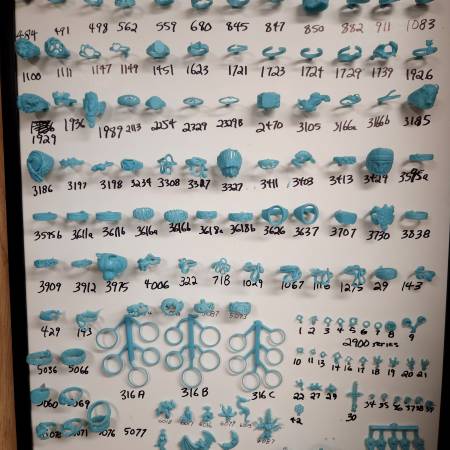 484 491 498 562 559 680 845 847 850 882 911 1083
1100 1111 1147 1149 1451 1623 1721 1723 1724 1729 1739 1926
1929 1936 1989 2113 2154 2229 2229B 2470 3105 3166a 3166b 3185
3186 3197 3198 3234 3308 3387 3327 3411 3408 3413 3429 3595a
3595b 3611a 3611b 3616a 3616b 3618a 3618b 3626 3637 3707 3730 3838
3909 3912 3975 4006 322 718 1029 1067 1116 1275 29 143
429 193
1 2 3 4 5 6 7 8 9
2900 series
5036 5066
10 11 13 14 16 17 18 19 20 21
316A 316B 316C
22 27 29 30 34 35 36 37 38 39
5060 5069
42
5071 5076 5077
6087